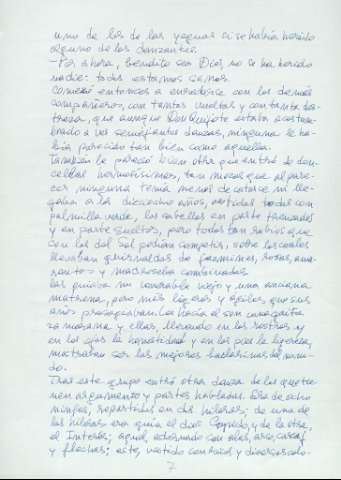 uno de los de las yeguas si se había herido
alguno de los danzantes.
-Por ahora, bendito sea Dios, no se ha herido
nadie: todos estamos sanos.
Comenzó entonces a enredarse con los demás
compañeros, con tantas vueltas y con tanta des-
treza, que aunque Don Quijote estaba acostum-
brado a ver semejantes danzas, ninguna le ha-
bía parecido tan bien como aquella.
También le pareció bien otra que entró de don-
cellas hermosísimas, tan mozas que al pare-
cer ninguna tenía menos de catorce ni lle-
gaba a los dieciocho años, vestidas todas con
palmilla verde, los cabellos en parte trenzados
y en parte sueltos, pero todos tan rubios que
con los del Sol podían competir, sobre los cuales
llevaban guirnaldas de jazmines, rosas, ama-
ranto y madreselva combinadas.
Las guiaba un venerable viejo y una anciana
matrona, pero más ligeros y ágiles que sus
años presagiaban. Les hacía el son una gaita
zamorana y ellas, llevando en los rostros y
en los ojos la honestidad y en los pies la ligereza,
mostraban ser las mejores bailarinas del mun-
do.
Tras este grupo entró otra danza de las que tie-
nen argumento y partes habladas. Era de ocho
ninfas, repartidas en dos hileras; de una de
las hileras era guía el dios Cupido, y de la otra,
el Interés; aquél, adornado con alas, arco, carcaj
y flechas; este, vestido con ricos y diversos colo-
7